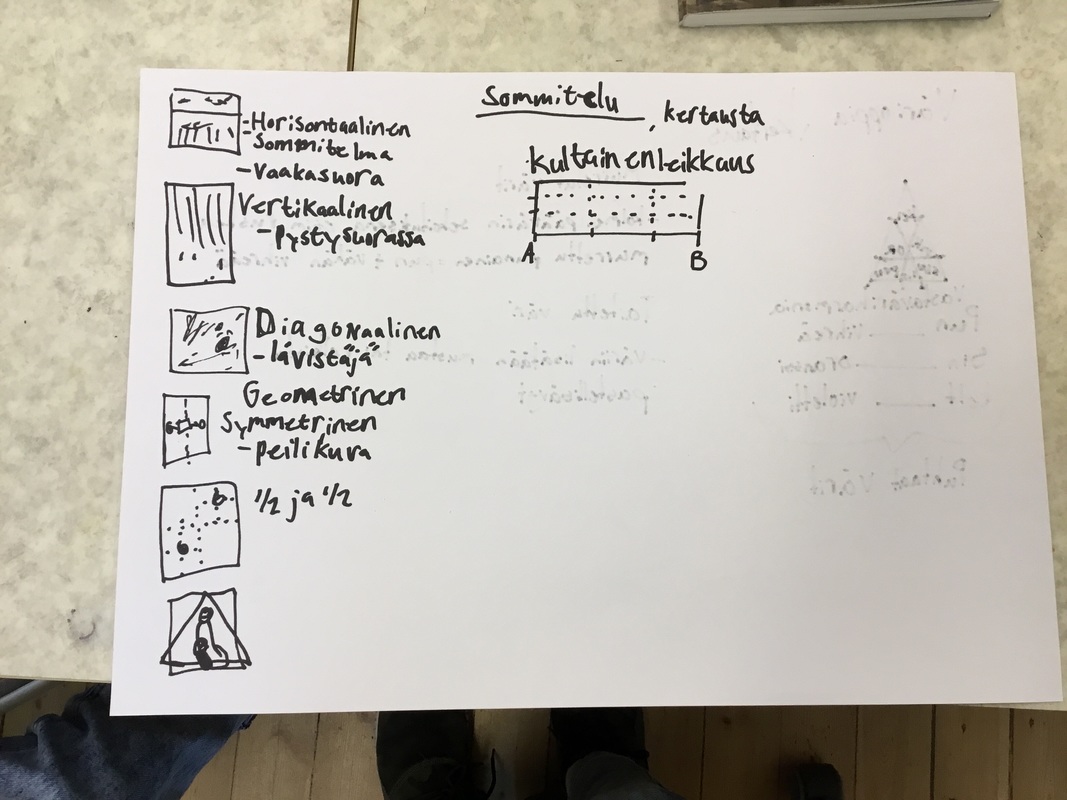 Sommitelu, kertausta
=Horisontaalinen
Sommitelma
-Vaakasuora
Vertikaalinen
-Pystysuorassa
Diagonaalinen
-lävistäjä
Geometrinen
Symmetrinen
-peilikuva
1/2 ja 1/2
Kultainenleikkaus
A B